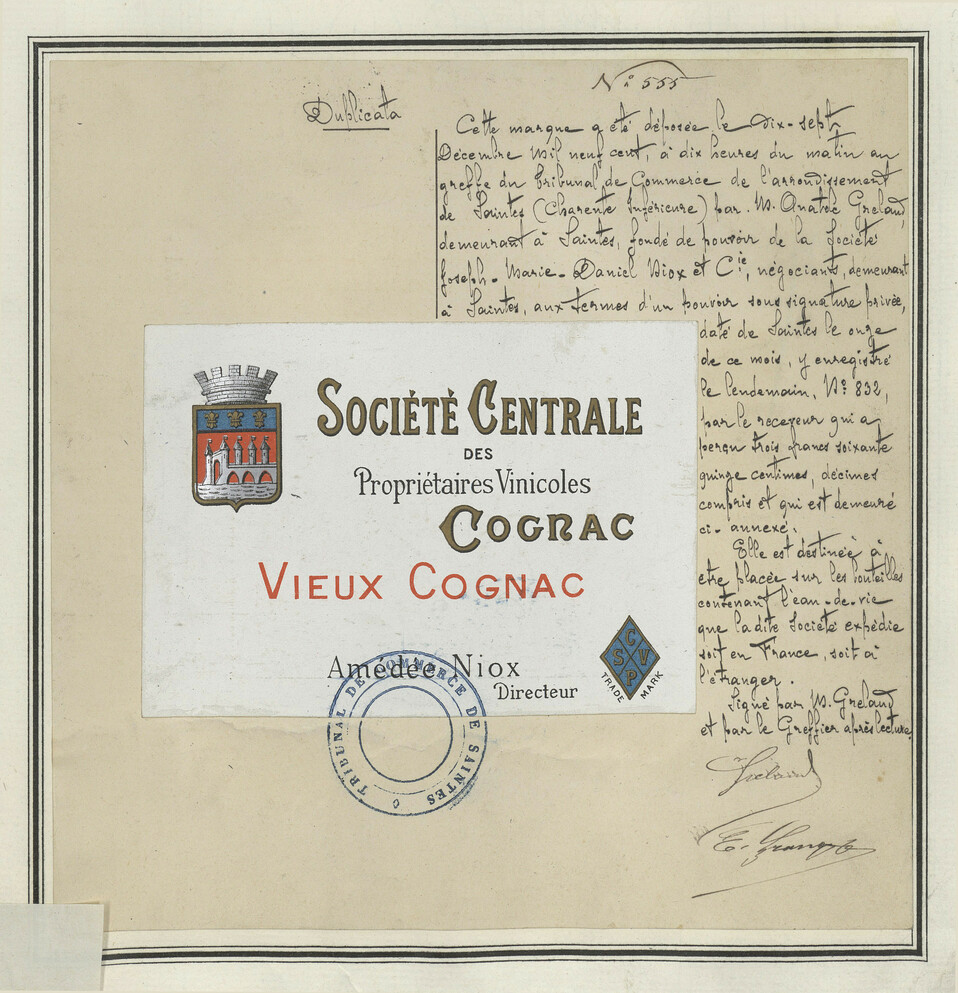 Duplicata
N° 555
Cette marque a été déposée le dix-sept
Décembre Mil neuf cent, à dix heures du matin au
greffe du Tribunal de Commerce de l'arrondissement
de Saintes (Charente Inférieure) par M. Anatole Grelaud,
demeurant à Saintes, fondé de pouvoir de la Société
Joseph-Marie-Daniel Niox et Cie, négociants, demeurant
à Saintes, aux termes d'un pouvoir sous signature privée,
daté de Saintes le onze
de ce mois, y enregistré
le lendemain, N° 832,
par le receveur qui a
perçu trois francs soixante
quinze centimes, décimes
compris et qui est demeuré
ci-annexé.
Elle est destinée à
être placée sur les bouteilles
contenant l'eau-de-vie
que ladite Société expédie
soit en France, soit à
l'étranger.
Signé par M. Grelaud
et par le Greffier après lecture.
Grelaud
E.
SOCIÉTÉ CENTRALE
DES
Propriétaires Vinicoles
COGNAC
VIEUX COGNAC
Amédée Niox
Directeur
C
S V
P
TRADE MARK
TRIBUNAL DE COMMERCE DE SAINTES